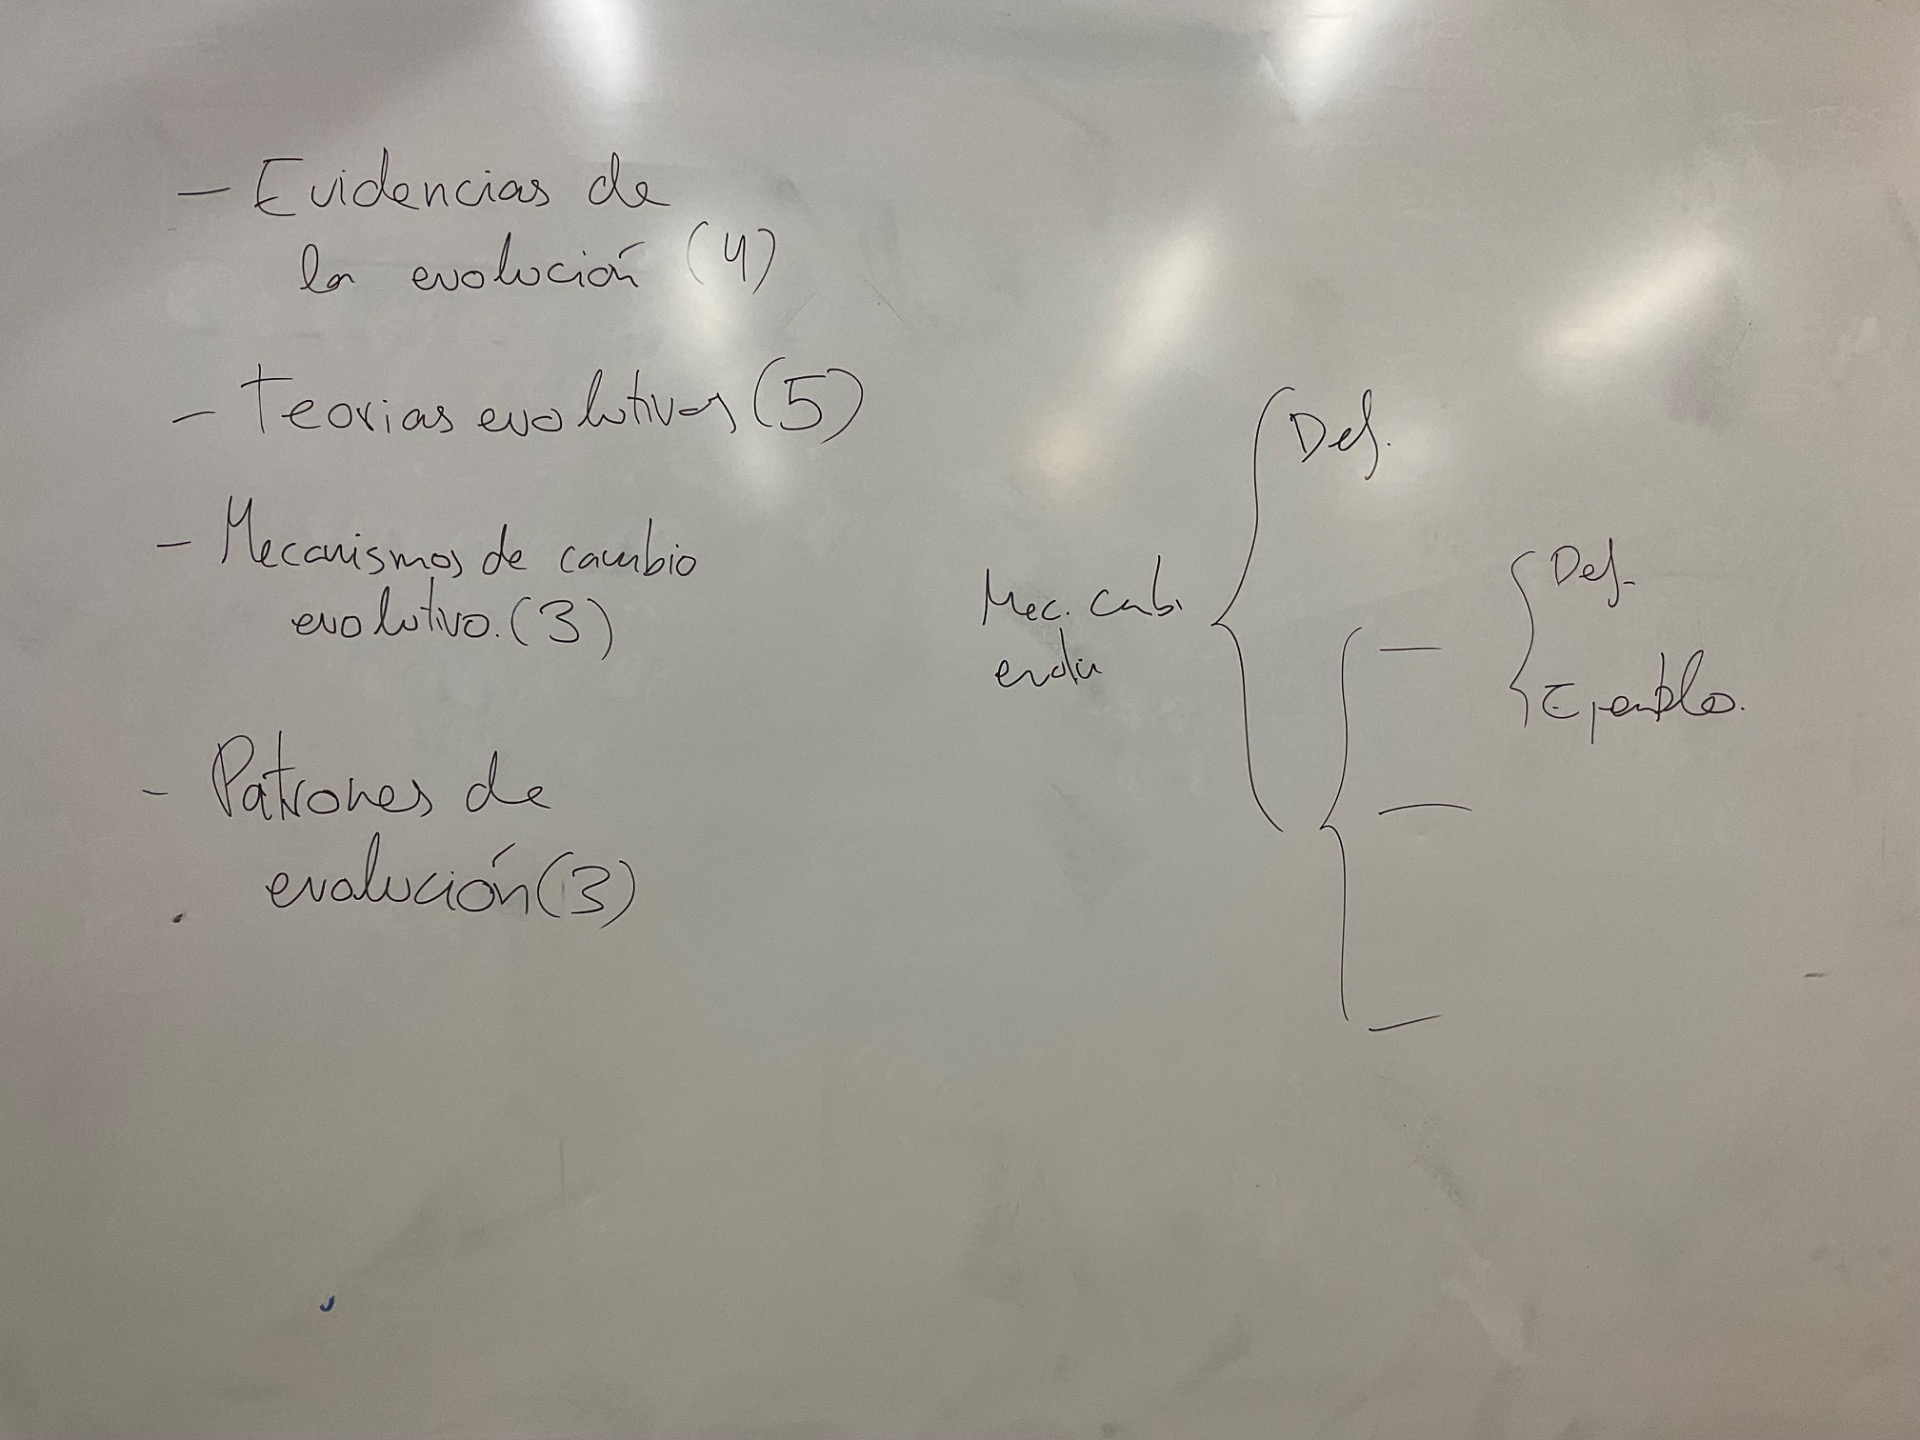 - Evidencias de
la evolución (4)
- Teorias evolutivas (5)
- Mecanismos de cambio
evolutivo. (3)
- Patrones de
evolución (3)
Def.
Mec. camb.
evolu
Def.
Ejemplo.